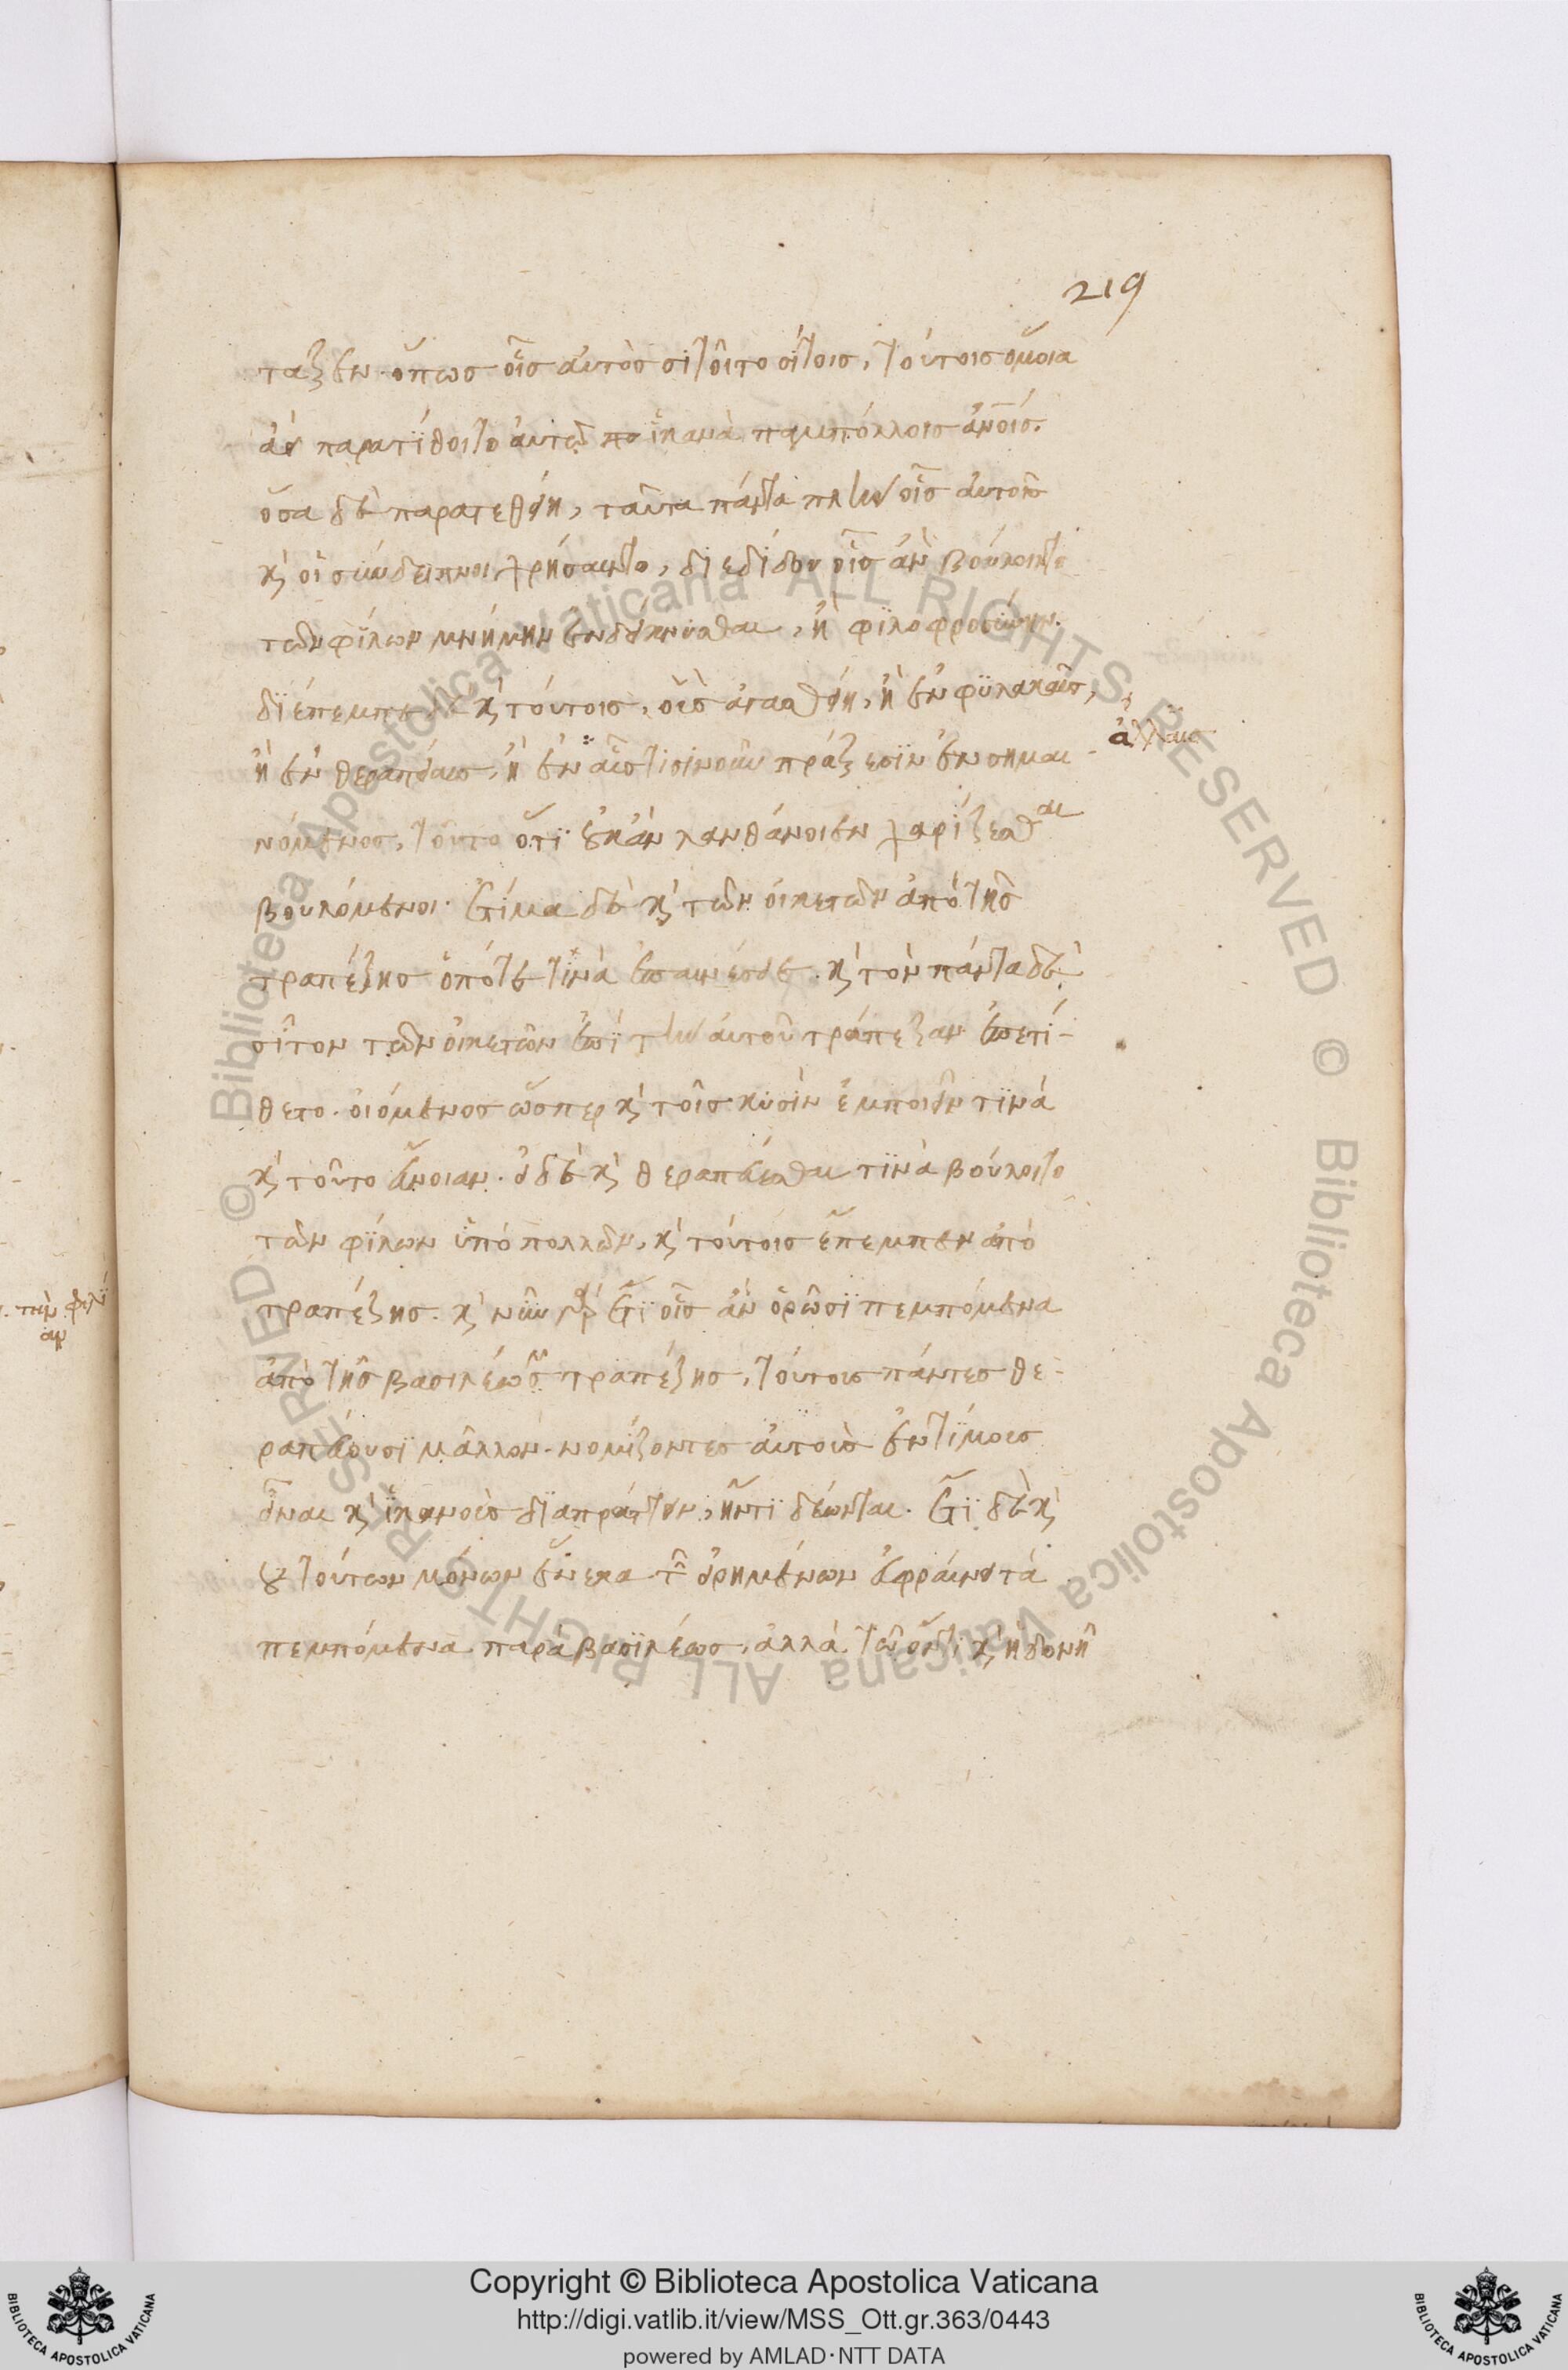 219
ταξεν ὅπως οἷς αὐτὸς σιτοῖτο σίτοις, τούτοις ὅμοια
ἀεὶ παρατίθοιτο αὐτῷ ἱκανὰ παμπόλλοις ἀνοις.
ὅσα δὲ παρατεθείη, ταῦτα πάντα πλὴν οἷς αὐτὸς
κ̀ οἱ σύνδειπνοι χρήσαιντο, διεδίδου οἷς ἂν βούλοιτο
τῶν φίλων μνήμην ἐνδείκνυσθαι, ἢ φιλοφροσύνην.
διέπεμπε δὲ κ̀ τούτοις, οὓς ἀγασθείη, ἢ ἐν φυλακαῖς,
ἢ ἐν θεραπείαις, ἢ ἐν αἷς τισὶν οὖν πράξεσιν ἐνσημαι-
ἄλλαις
νόμενος, τοῦτο ὅτι οὐκ ἂν λανθάνοιεν χαρίζεσθαι
βουλόμενοι. ἐτίμα δὲ κ̀ τῶν οἰκετῶν ἀπὸ τῆς
τραπέζης ὁπότε τινὰ ἐπαινέσειε. κ̀ τὸν πάντα δὲ
σῖτον τῶν οἰκετῶν ἐπὶ τὴν αὐτοῦ τράπεζαν ἐπετί-
θετο. οἰόμενος ὥσπερ κ̀ τοῖς κυσὶν ἐμποιεῖν τινὰ
κ̀ τοῦτο εὔνοιαν. εἰ δὲ κ̀ θεραπεύεσθαι τινὰ βούλοιτο
τῶν φίλων ὑπὸ πολλῶν, κ̀ τούτοις ἔπεμπεν ἀπὸ
τραπέζης. κ̀ νῦν γὰρ ἔτι οἷς ἂν ὁρῶσι πεμπόμενα
ἀπὸ τῆς βασιλέως τραπέζης, τούτους πάντες θε-
ραπεύουσι μᾶλλον. νομίζοντες αὐτοὺς ἐντίμους
εἶναι κ̀ ἱκανοὺς διαπράττειν, ἤν τι δέωνται. ἔτι δὲ κ̀
οὐ τούτων μόνων ἕνεκα τῶν εἰρημένων εὐφραίνει τὰ
πεμπόμενα παρὰ βασιλέως, ἀλλὰ τῷ ὄντι κ̀ ἡδονῇ
Copyright © Biblioteca Apostolica Vaticana
http://digi.vatlib.it/view/MSS_Ott.gr.363/0443
powered by AMLAD·NTT DATA